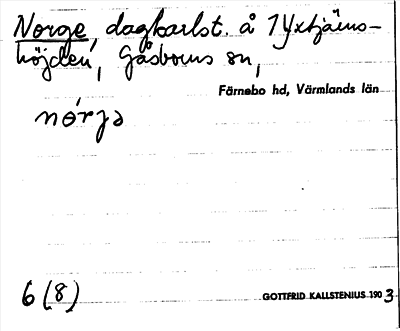 Norge, dagkarlst. å 1 Yxtjärns-
höjden, Gåsborns sn,
Färnebo hd, Värmlands län
nórjə
6 (8)
GOTTFRID KALLSTENIUS 1903